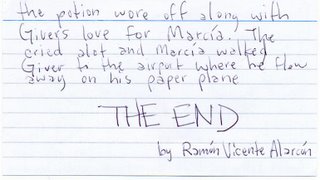 the potion wore off along with
Givers love for Marcía. The
cried alot and Marcía walked
Giver to the airport where he flow
away on his paper plane
THE END
by Ramón Vicente Alarcón